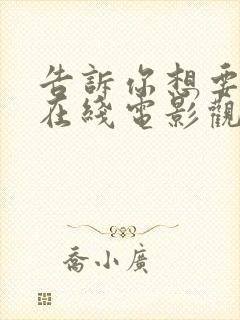 告訴你想要
在綫電影觀
喬小廣